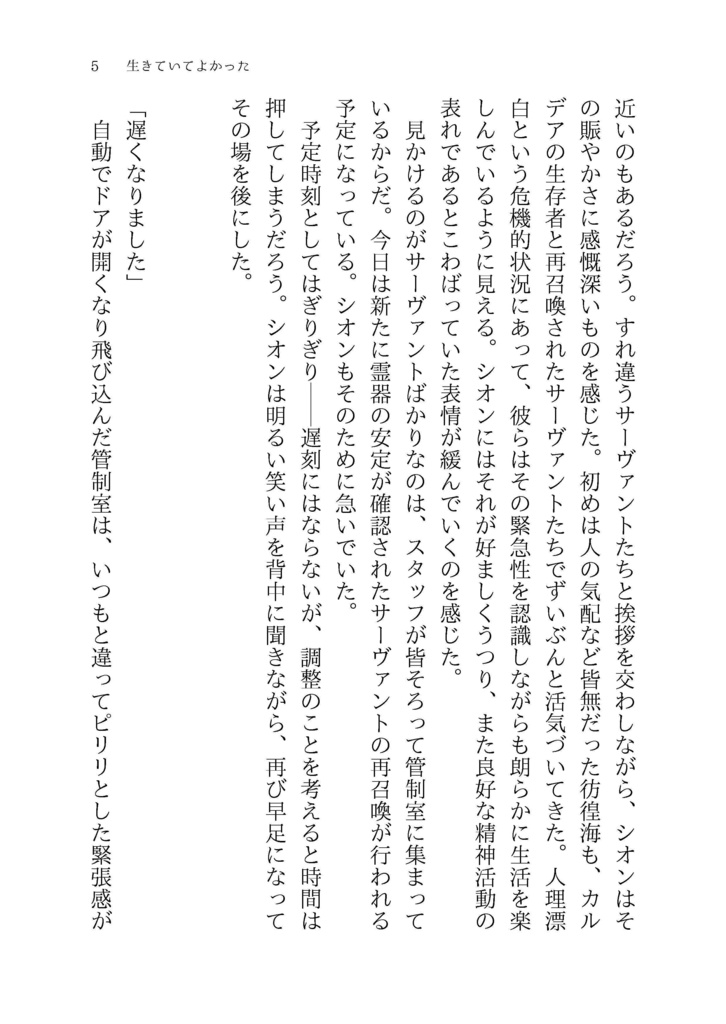 5　生きていてよかった
近いのもあるだろう。すれ違うサーヴァントたちと挨拶を交わしながら、シオンはそ
の賑やかさに感慨深いものを感じた。初めは人の気配など皆無だった彷徨海も、カル
デアの生存者と再召喚されたサーヴァントたちでずいぶんと活気づいてきた。人理漂
白という危機的状況にあって、彼らはその緊急性を認識しながらも朗らかに生活を楽
しんでいるように見える。シオンにはそれが好ましくうつり、また良好な精神活動の
表れであるとこわばっていた表情が緩んでいくのを感じた。
　見かけるのがサーヴァントばかりなのは、スタッフが皆そろって管制室に集まって
いるからだ。今日は新たに霊器の安定が確認されたサーヴァントの再召喚が行われる
予定になっている。シオンもそのために急いでいた。
　予定時刻としてはぎりぎり――遅刻にはならないが、調整のことを考えると時間は
押してしまうだろう。シオンは明るい笑い声を背中に聞きながら、再び早足になって
その場を後にした。
「遅くなりました」
　自動でドアが開くなり飛び込んだ管制室は、いつもと違ってピリリとした緊張感が